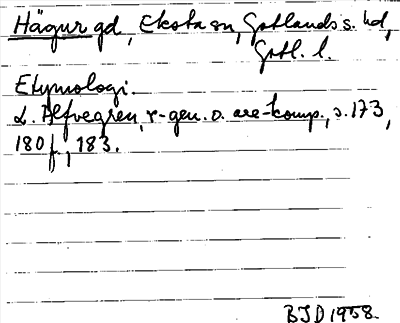 Hägur gd, Eksta sn, Gotlands s. hd,
Gotl. l.
Etymologi.
L. Alfvegren, r-gen. o. are-komp., s. 173,
180 f., 183.
BJD 1958.